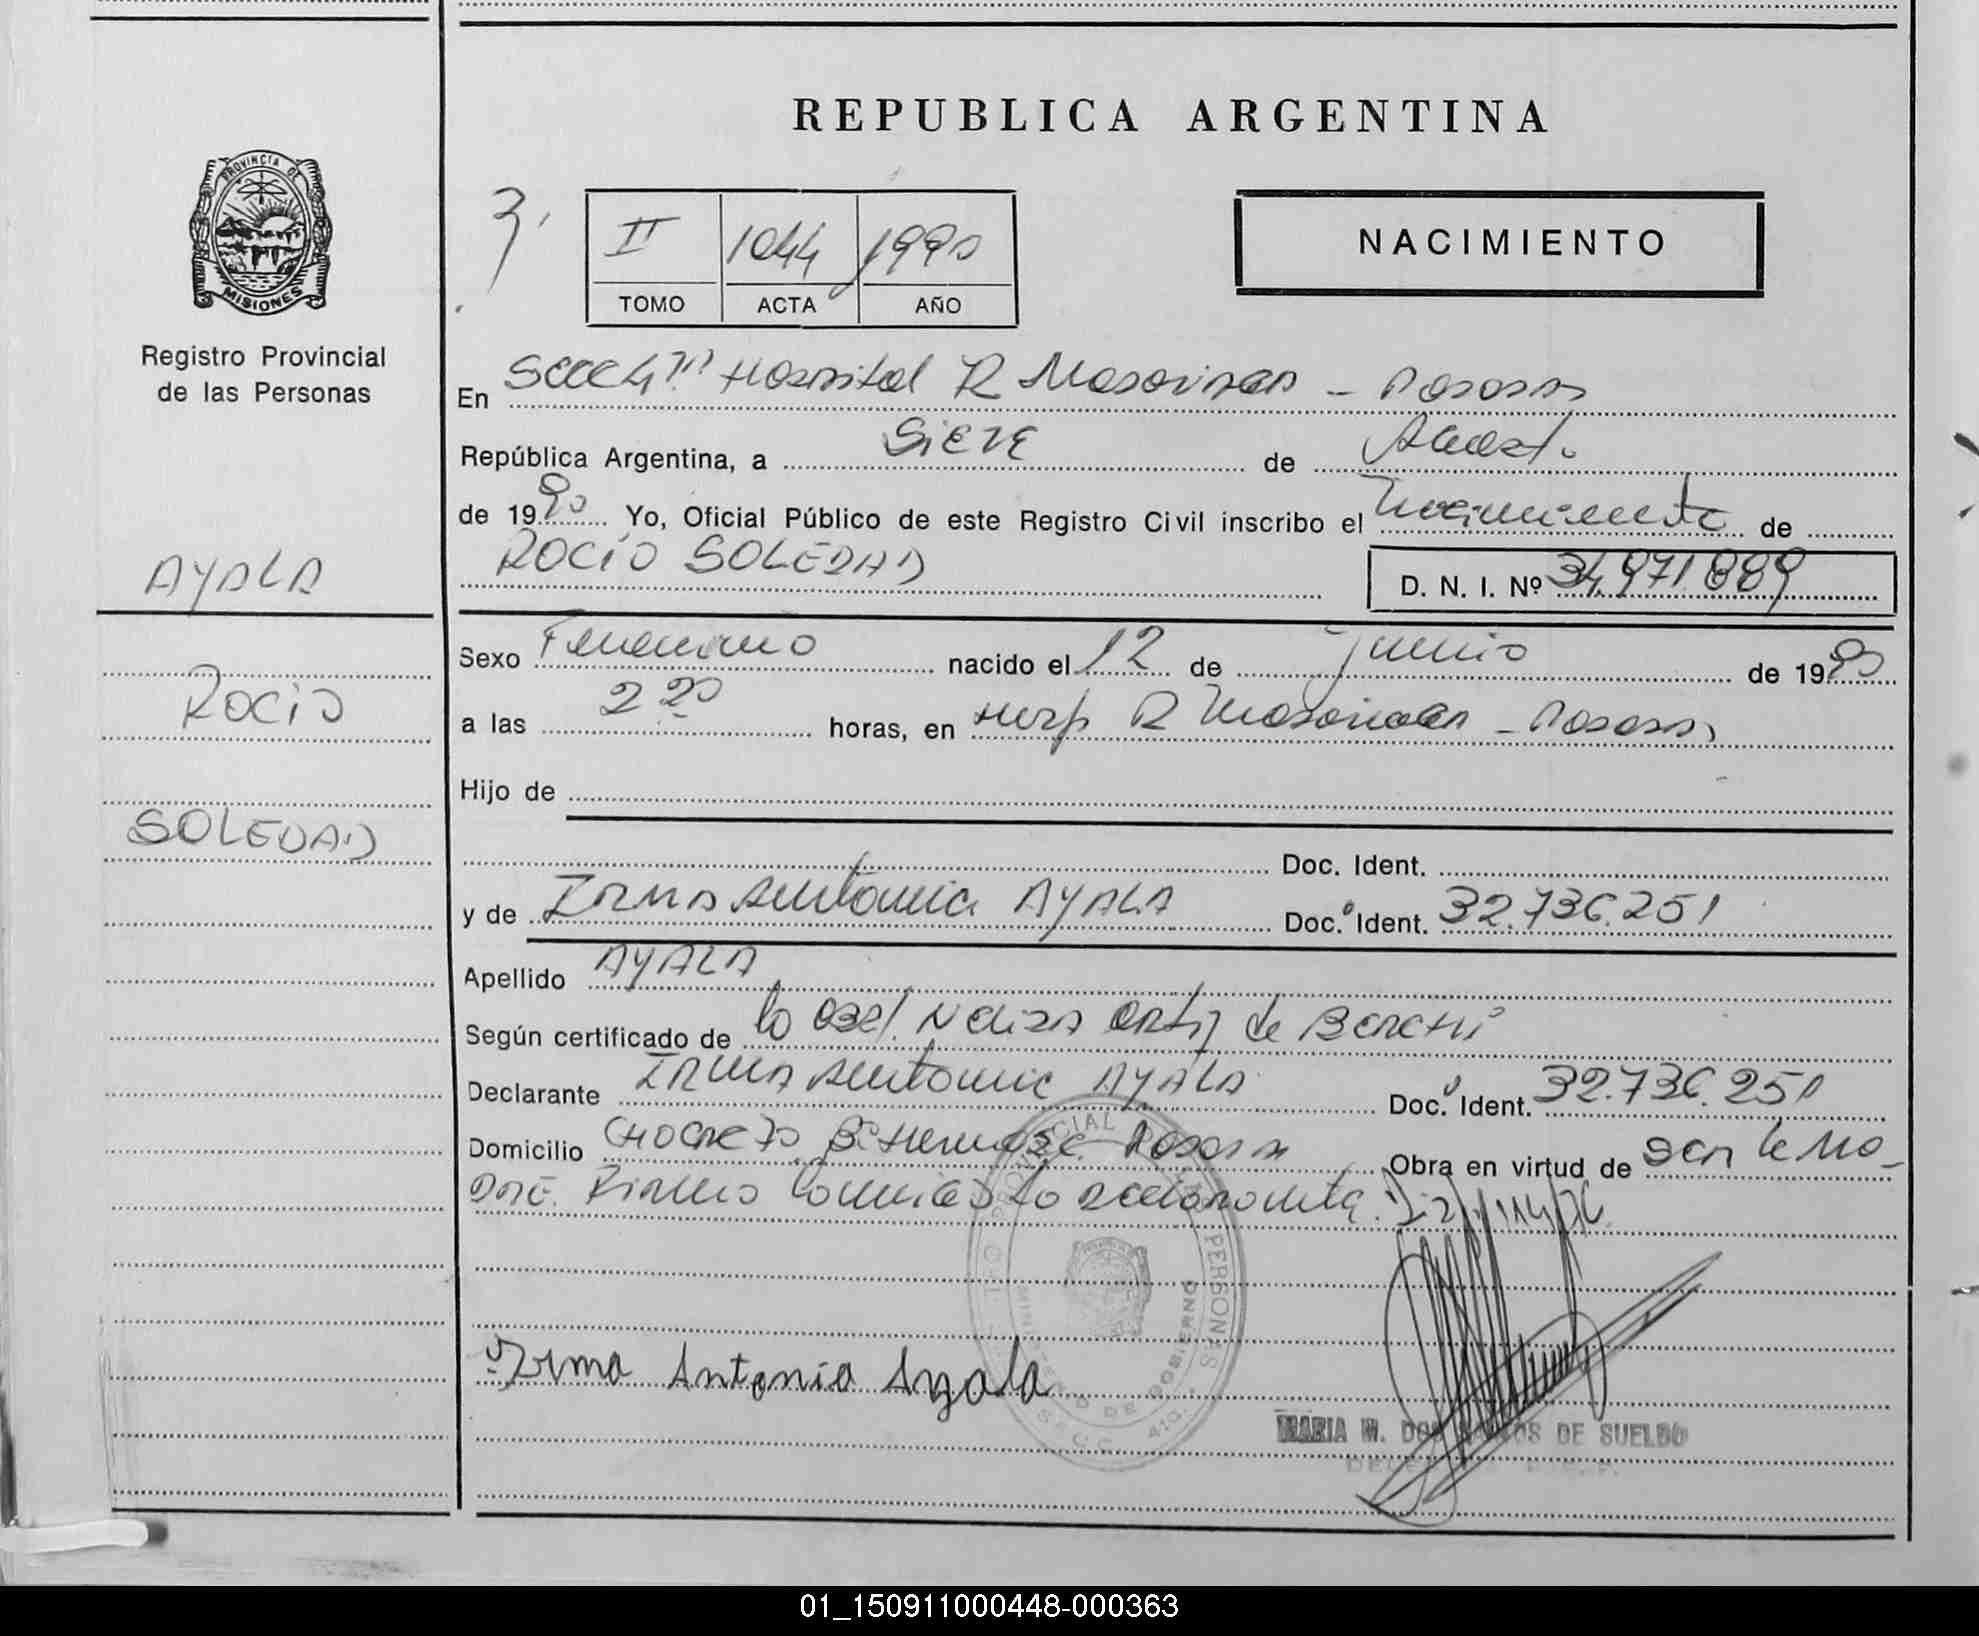 REPUBLICA ARGENTINA
PROVINCIA DE
MISIONES
Registro Provincial
de las Personas
3.
II 1044 1990
TOMO ACTA AÑO
NACIMIENTO
En Secc 4ta Hospital R Madariaga - Posadas
República Argentina, a SIETE de Agosto
de 1990 Yo, Oficial Público de este Registro Civil inscribo el Nacimiento de
ROCIO SOLEDAD
D. N. I. Nº 34.971.889
AYALA
ROCIO
SOLEDAD
Sexo Femenino nacido el 12 de junio de 1990
a las 2 20 horas, en Hosp R Madariaga - Posadas
Hijo de
Doc. Ident.
y de IRMA Antonia AYALA Doc. Ident. 32.736.251
Apellido AYALA
Según certificado de la Obst. Nelida Ortiz de
Declarante IRMA Antonia AYALA Doc. Ident. 32.736.251
Domicilio Posadas Obra en virtud de ser la ma-
dre. Firma conmigo la declarante.
Irma Antonia Ayala
PERSONAS
MINISTERIO DE GOBIERNO
SECC. 4ta.
MARIA M. DOS SANTOS DE SUELDO
01_150911000448-000363